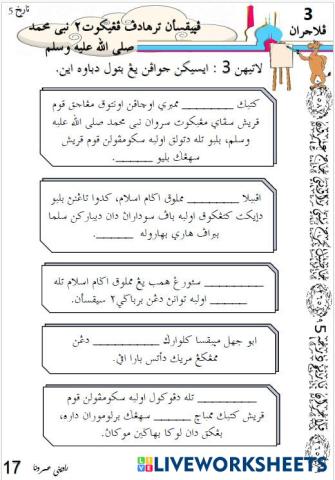 تاريخ 5
3
ڤلاجران
ڤڽيقسأن ترهادڤ ڤڠيكوت٢ نبي محمد
صلى الله عليه وسلم
لاتيهن 3 : ايسيكن جواڤن يڠ بتول دباوه اين.
كتيک ________ ممبري اوچاڤن اونتوق مڠاجق قوم
قريش سڤاي مڠيكوت سروان نبي محمد صلى الله عليه
وسلم، بليو تله دتولق اوليه سكومڤولن قوم قريش
سهڠڬ بليو ______.
اڤبيلا ________ مملوق اݢام اسلام، كدوا تاڠنن بليو
دإيكت كتڠكوق اوليه باڤ سوداران دان ديباركن سلما
ببراڤ هاري بهاروله ______.
________ سئورڠ همب يڠ مملوق اݢام اسلام تله
________ اوليه توانن دڠن برباݢي٢ سيقسأن.
ابو جهل مڽيقسا كلوارݢ ________ دڠن
ممڠݢڠ مريک دأتس بارا اڤي.
________ تله دڤوكول اوليه سكومڤولن قوم
قريش كتيک ممباچ ________ سهڠݢ برلوموران داره،
بڠكق دان لوک بهاݢين موكاڽ.
17
LIVEWORKSHEETS